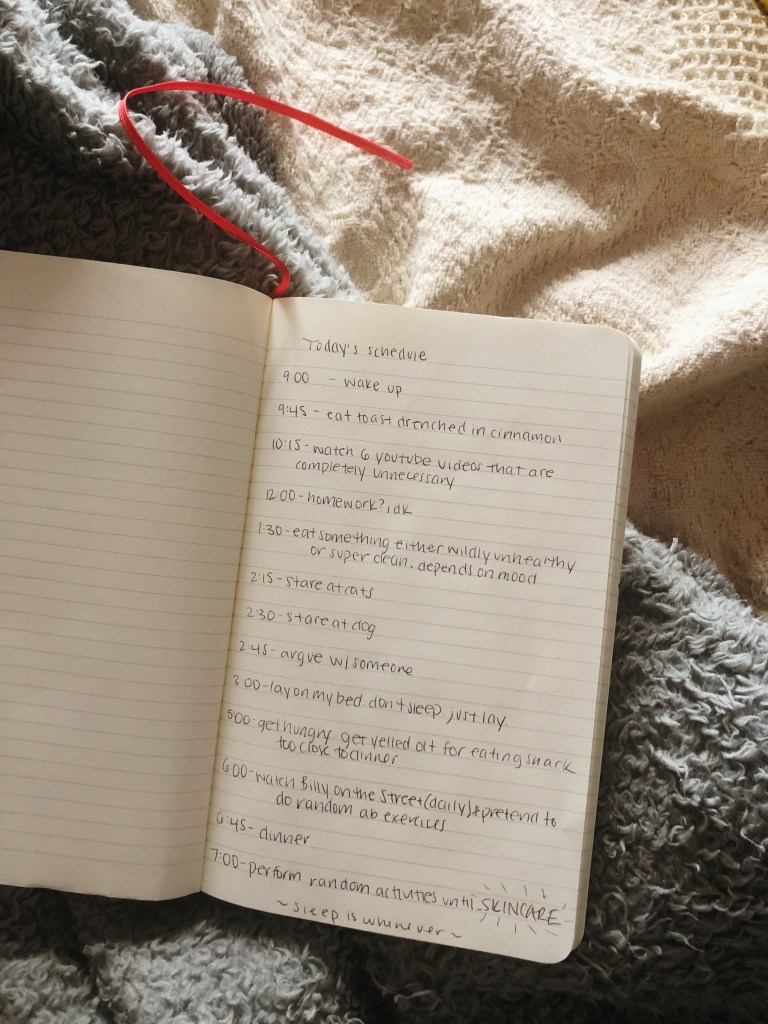 Today's schedule
9:00 - wake up
9:45 - eat toast drenched in cinnamon
10:15 - watch 6 youtube videos that are
completely unnecessary
12:00 - homework? idk
1:30 - eat something either wildly unhealthy
or super clean. depends on mood
2:15 - stare at rats
2:30 - stare at dog
2:45 - argue w/ someone
3:00 - lay on my bed. don't sleep. just lay.
5:00 - get hungry. get yelled at for eating snack
too close to dinner
6:00 - watch Billy on the Street (daily) & pretend to
do random ab exercices
6:45 - dinner
7:00 - perform random activities until SKINCARE
~ sleep is whenever ~